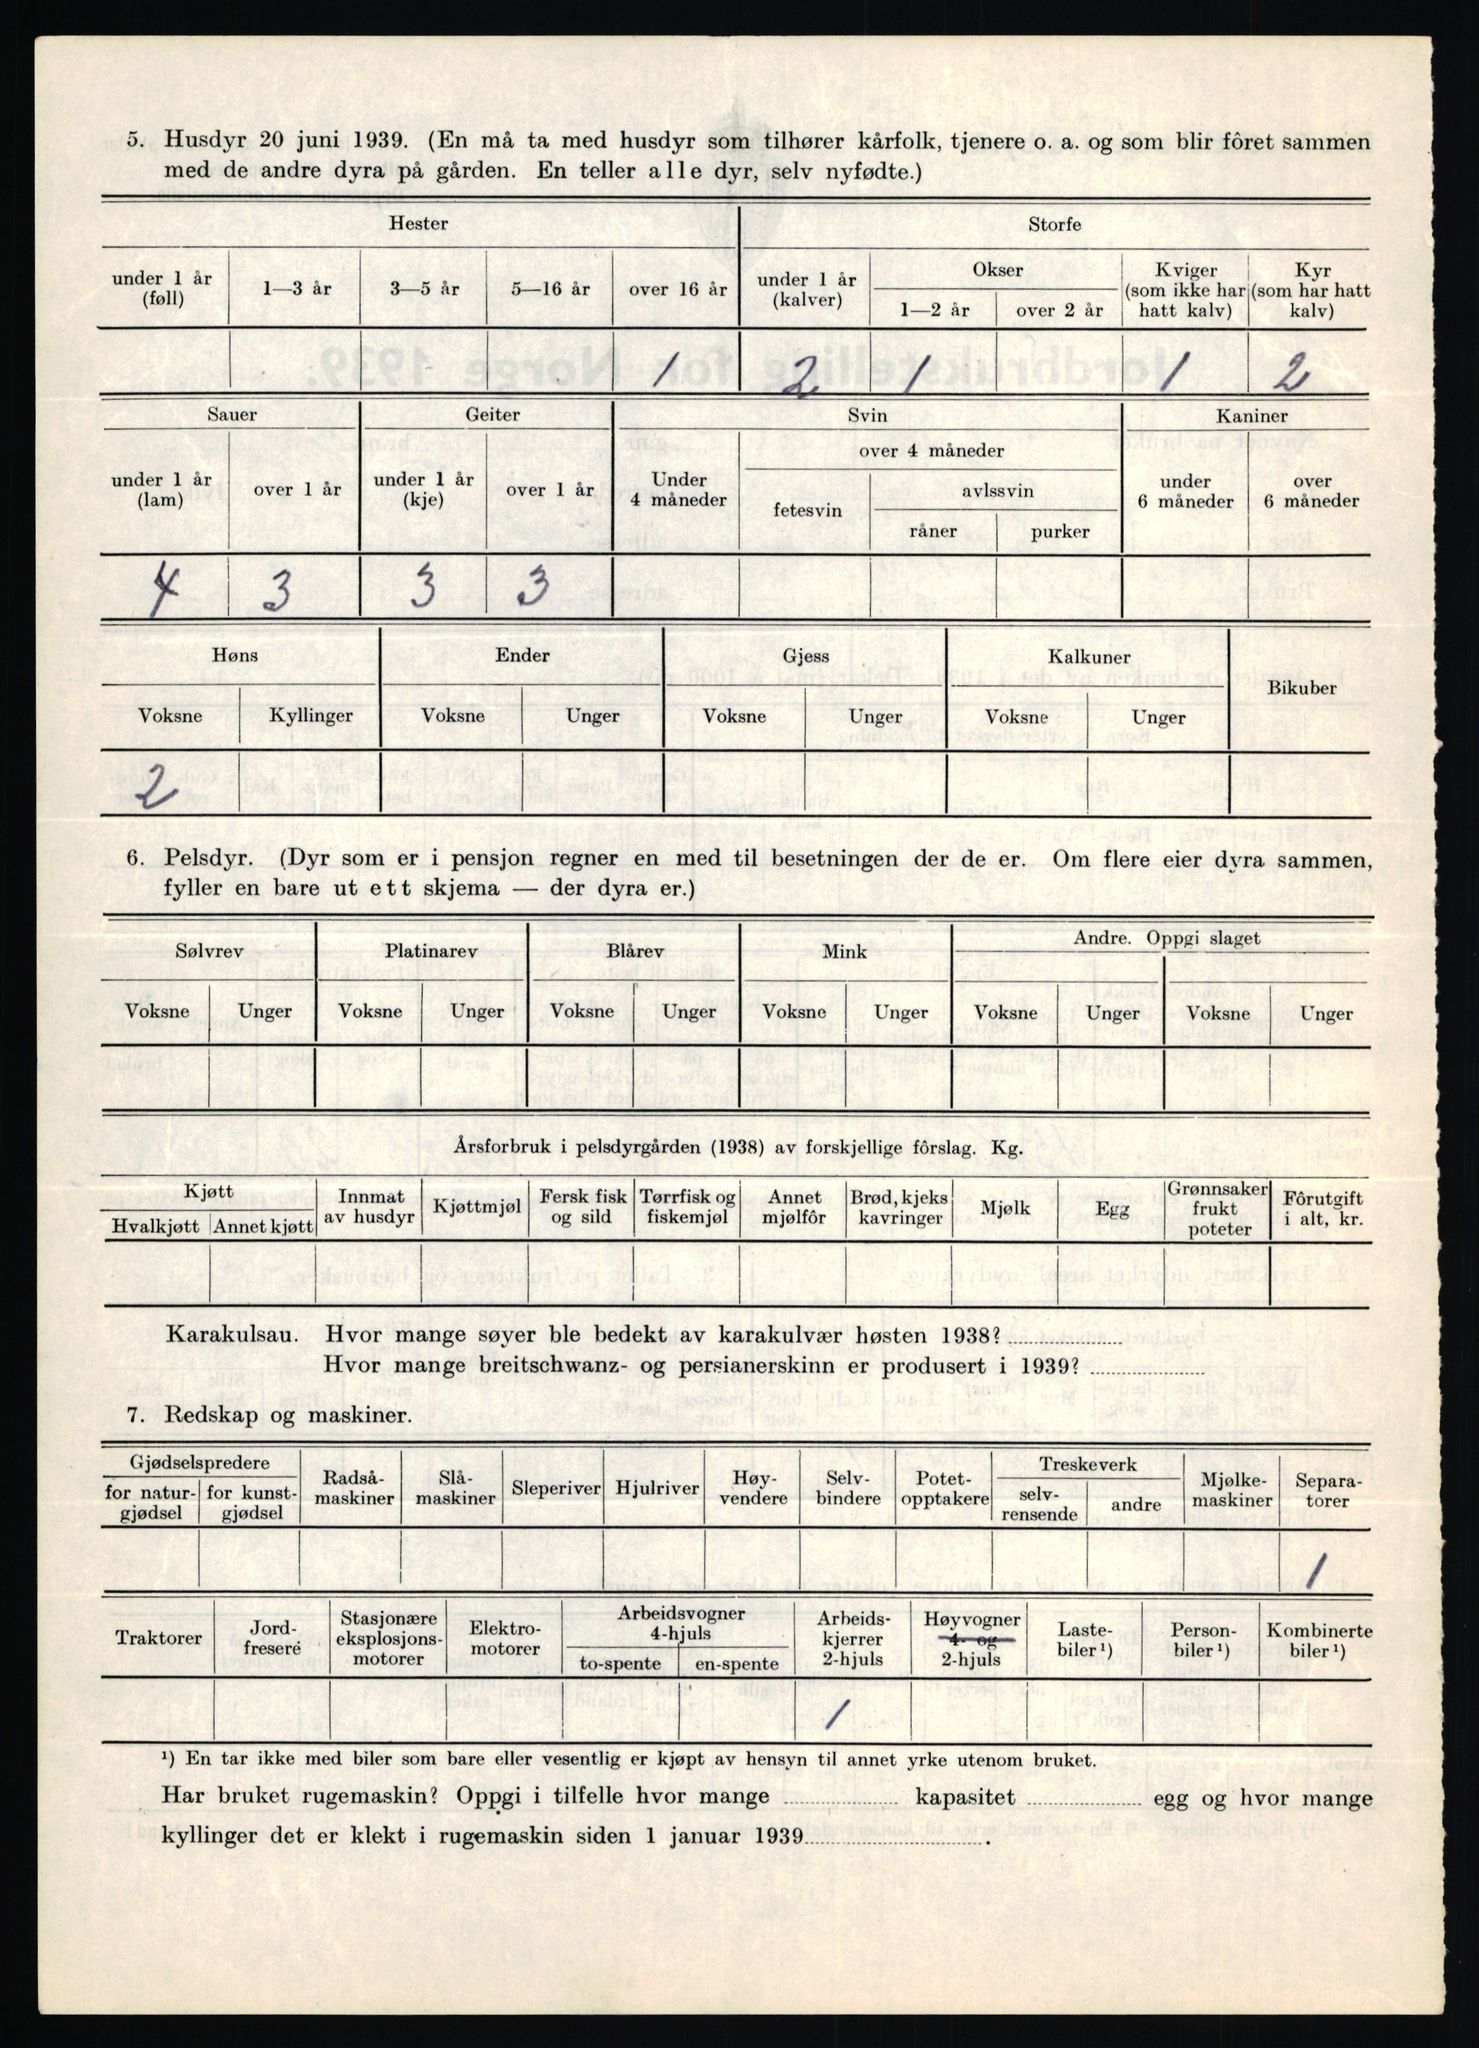 5. Husdyr 20 juni 1939. (En må ta med husdyr som tilhører kårfolk, tjenere o. a. og som blir fôret sammen
med de andre dyra på gården. En teller alle dyr, selv nyfødte.)
Hester Storfe
under 1 år (føll) 1—3 år 3—5 år 5—16 år over 16 år under 1 år (kalver) Okser 1—2 år over 2 år Kviger (som ikke har hatt kalv) Kyr (som har hatt kalv)
1 2 1 1 2
Sauer Geiter Svin Kaniner
under 1 år (lam) over 1 år under 1 år (kje) over 1 år Under 4 måneder over 4 måneder fetesvin avlssvin råner purker under 6 måneder over 6 måneder
4 3 3 3
Høns Ender Gjess Kalkuner Bikuber
Voksne Kyllinger Voksne Unger Voksne Unger Voksne Unger
2
6. Pelsdyr. (Dyr som er i pensjon regner en med til besetningen der de er. Om flere eier dyra sammen,
fyller en bare ut ett skjema — der dyra er.)
Sølvrev Platinarev Blårev Mink Andre. Oppgi slaget
Voksne Unger Voksne Unger Voksne Unger Voksne Unger Voksne Unger Voksne Unger
Årsforbruk i pelsdyrgården (1938) av forskjellige fôrslag. Kg.
Kjøtt Hvalkjøtt Annet kjøtt Innmat av husdyr Kjøttmjøl Fersk fisk og sild Tørrfisk og fiskemjøl Annet mjølfôr Brød, kjeks kavringer Mjølk Egg Grønnsaker frukt poteter Fôrutgift i alt, kr.
Karakulsau. Hvor mange søyer ble bedekt av karakulvær høsten 1938?
Hvor mange breitschwanz- og persianerskinn er produsert i 1939?
7. Redskap og maskiner.
Gjødselspredere for natur-gjødsel for kunst-gjødsel Radså-maskiner Slå-maskiner Sleperiver Hjulriver Høy-vendere Selv-bindere Potet-opptakere Treskeverk selv-rensende andre Mjølke-maskiner Separa-torer
1
Traktorer Jord-fresere Stasjonære eksplosjons-motorer Elektro-motorer Arbeidsvogner 4-hjuls to-spente en-spente Arbeids-kjerrer 2-hjuls Høyvogner 4- og 2-hjuls Laste-biler ¹) Person-biler ¹) Kombinerte biler ¹)
1
¹) En tar ikke med biler som bare eller vesentlig er kjøpt av hensyn til annet yrke utenom bruket.
Har bruket rugemaskin? Oppgi i tilfelle hvor mange kapasitet egg og hvor mange
kyllinger det er klekt i rugemaskin siden 1 januar 1939 .